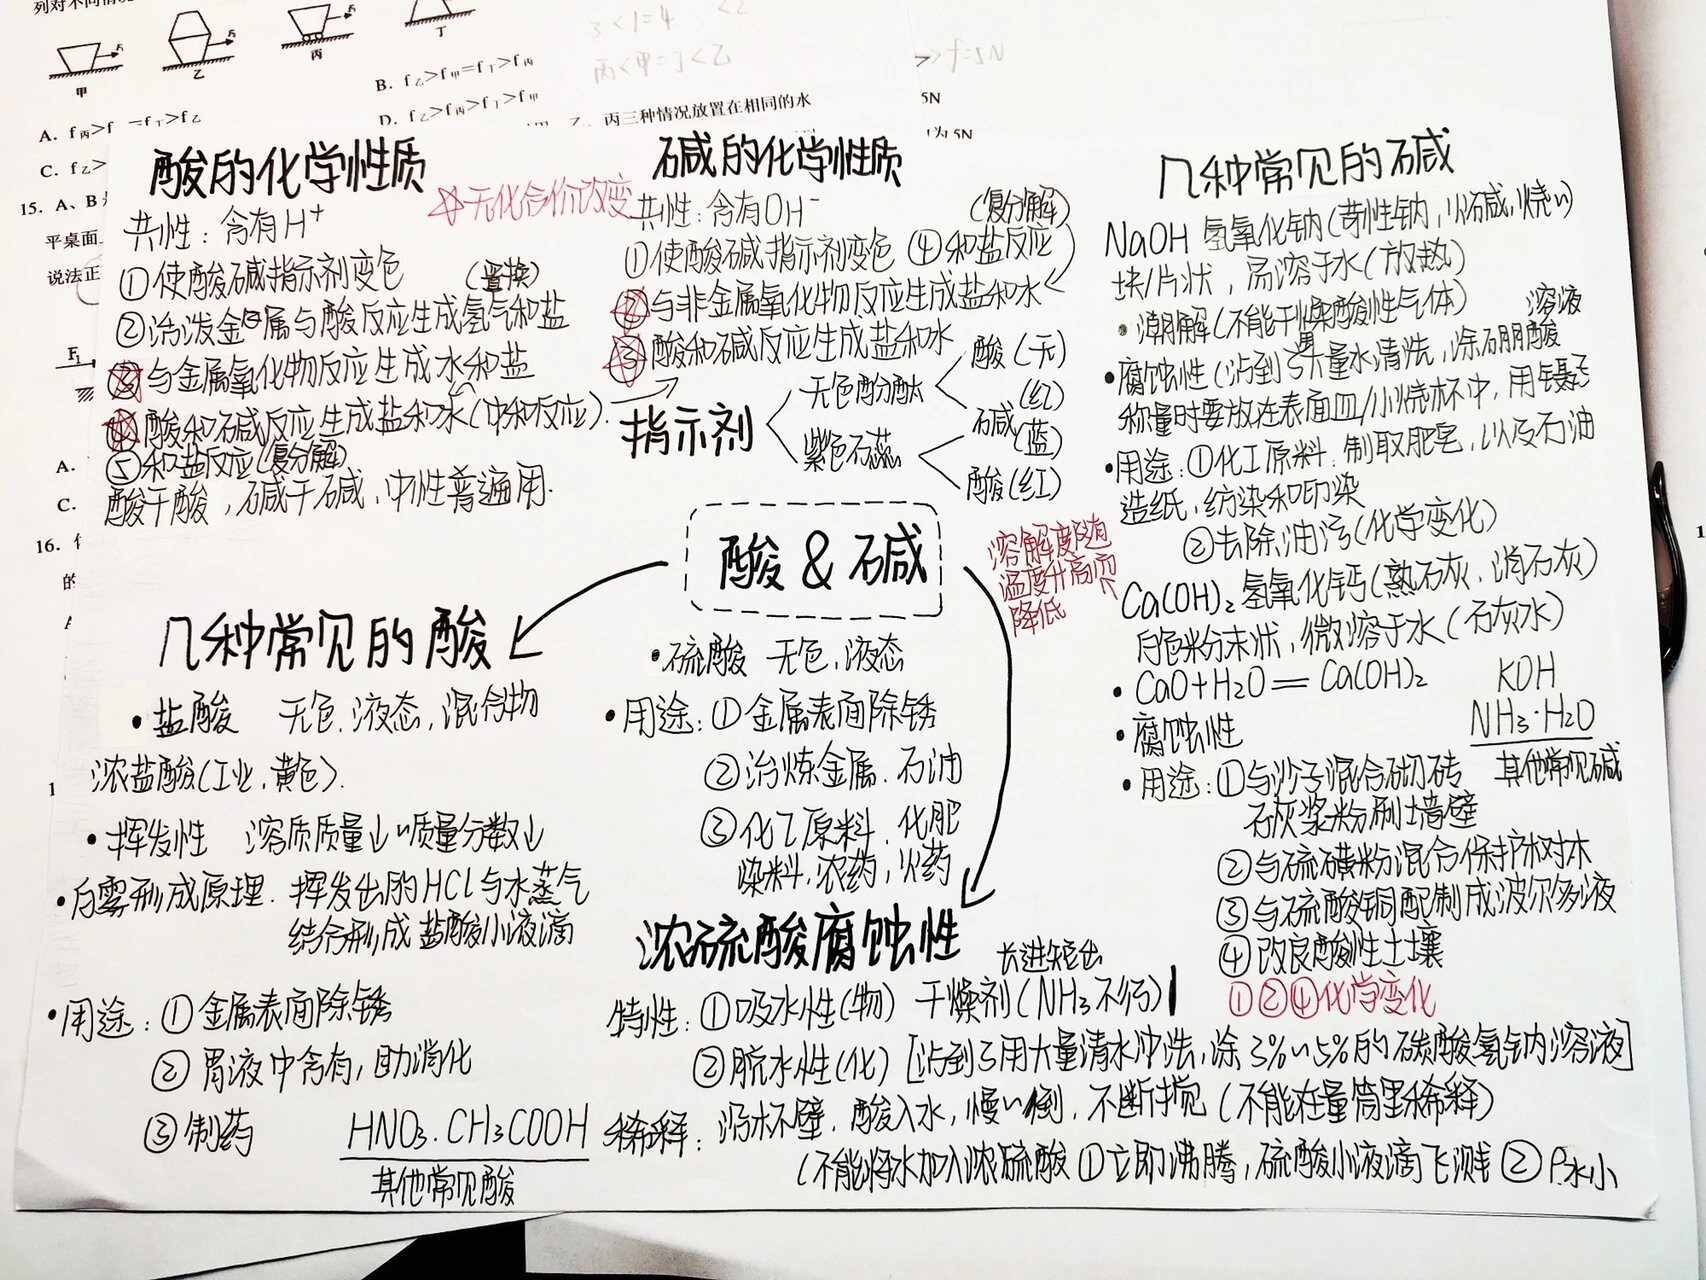 列对不同情况
甲
乙
丙
丁
B. f乙>f甲=f丁>f丙
D. f乙>f丙>f丁>f甲
3<1=4
<2
丙<甲=丁<乙
f=5N
A. f丙>f =f丁>f乙
C. f乙>
丙三种情况放置在相同的水
5N
为5N
15. A、B
平桌面
说法正
A.
C.
16.
的
酸的化学性质
☆无化合价改变
共性：含有H⁺
①使酸碱指示剂变色 (置换)
②活泼金属与酸反应生成氢气和盐
③与金属氧化物反应生成水和盐
④酸和碱反应生成盐和水(中和反应).
⑤和盐反应(复分解)
酸干酸，碱干碱，中性普遍用.
碱的化学性质
共性：含有OH⁻ (复分解)
①使酸碱指示剂变色 ④和盐反应
②与非金属氧化物反应生成盐和水
③酸和碱反应生成盐和水
指示剂
无色酚酞
酸(无)
(红)
碱
(蓝)
紫色石蕊
酸(红)
酸&碱
溶解度随
温度升高而
降低
几种常见的酸
•盐酸 无色.液态，混合物
浓盐酸(工业.黄色).
•挥发性 溶质质量↓~质量分数↓
•白雾形成原理.挥发出的HCl与水蒸气
结合形成盐酸小液滴
•用途：①金属表面除锈
②胃液中含有，助消化
③制药
HNO₃.CH₃COOH
其他常见酸
•硫酸 无色.液态
•用途：①金属表面除锈
②冶炼金属.石油
③化工原料.化肥
染料，农药，火药
浓硫酸腐蚀性
长进短出
特性：①吸水性(物) 干燥剂(NH₃不行)
②脱水性(化)[沾到→用大量清水冲洗，涂3%~5%的碳酸氢钠溶液]
稀释：沿杯壁.酸入水，慢~倒.不断搅(不能在量筒里稀释)
(不能将水加入浓硫酸①立即沸腾，硫酸小液滴飞溅②ρ水小
几种常见的碱
NaOH 氢氧化钠(苛性钠，火碱，烧~)
块/片状，易溶于水(放热)
•潮解(不能干燥酸性气体)
溶液
•腐蚀性(沾到→大量水清洗，涂硼酸
称量时要放在表面皿/小烧杯中，用镊子
•用途：①化工原料：制取肥皂，以及石油
造纸，纺染和印染
②去除油污(化学变化)
Ca(OH)₂氢氧化钙(熟石灰.消石灰)
白色粉末状，微溶于水(石灰水)
•CaO+H₂O=Ca(OH)₂
KOH
NH₃·H₂O
其他常见碱
•腐蚀性
•用途：①与沙子混合砌砖
石灰浆粉刷墙壁
②与硫磺粉混合保护树木
③与硫酸铜配制成波尔多液
④改良酸性土壤
①②④化学变化